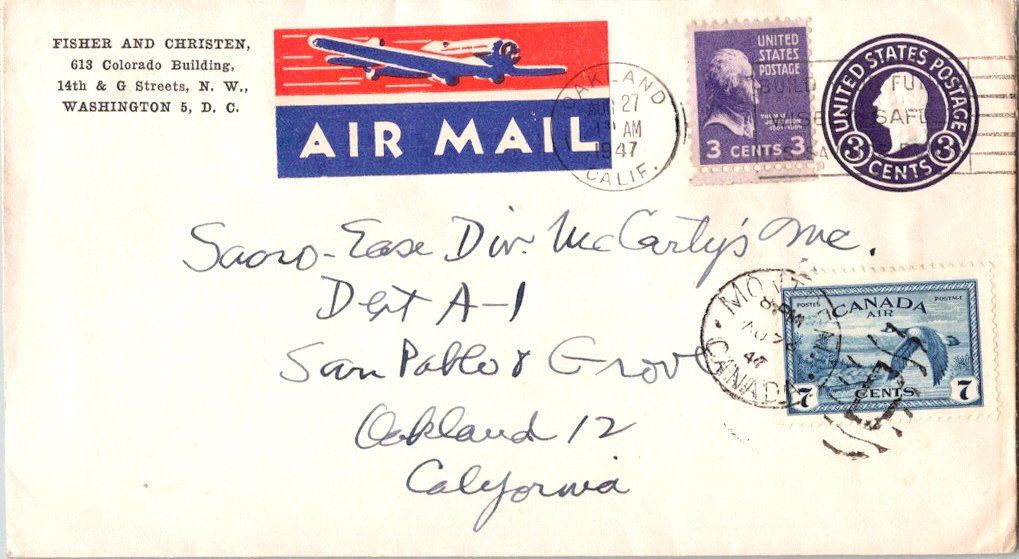 FISHER AND CHRISTEN,
613 Colorado Building,
14th & G Streets, N. W.,
WASHINGTON 5, D. C.
AIR MAIL
OAKLAND
AUG 27
AM
1947
CALIF.
UNITED
STATES
POSTAGE
THOMAS
JEFFERSON
1801-1809
3 CENTS 3
BUILD FU
SAFE
UNITED STATES POSTAGE
3 CENTS 3
Sacro-Ease Div. McCarty's Inc.
Dept A-1
San Pablo & Grove
Oakland 12
California
PM
AU
47
CANADA
POSTES POSTAGE
CANADA
AIR
7 CENTS 7